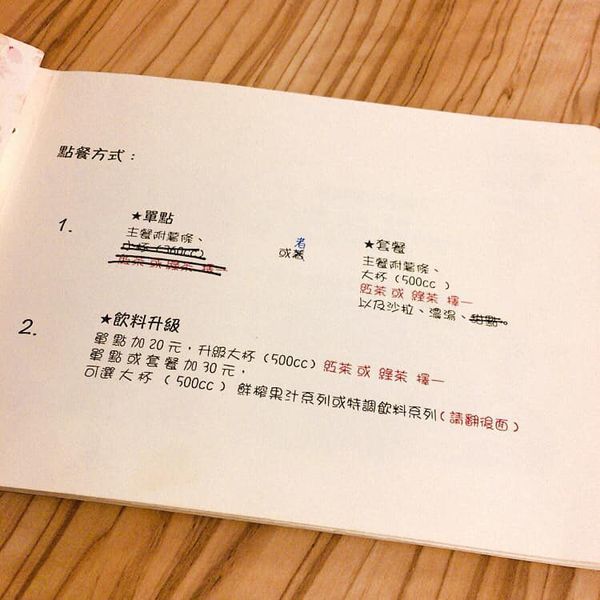 點餐方式：
1.
★單點
主餐附薯條、
小杯（360cc）
紅茶 或 綠茶 擇一
或著
者
★套餐
主餐附薯條、
大杯（500cc ）
紅茶 或 綠茶 擇一
以及沙拉、濃湯、甜點。
2.
★飲料升級
單點加20元，升級大杯（500cc）紅茶 或 綠茶 擇一
單點或套餐加30元，
可選大杯（500cc ）鮮榨果汁系列或特調飲料系列(請翻後面)